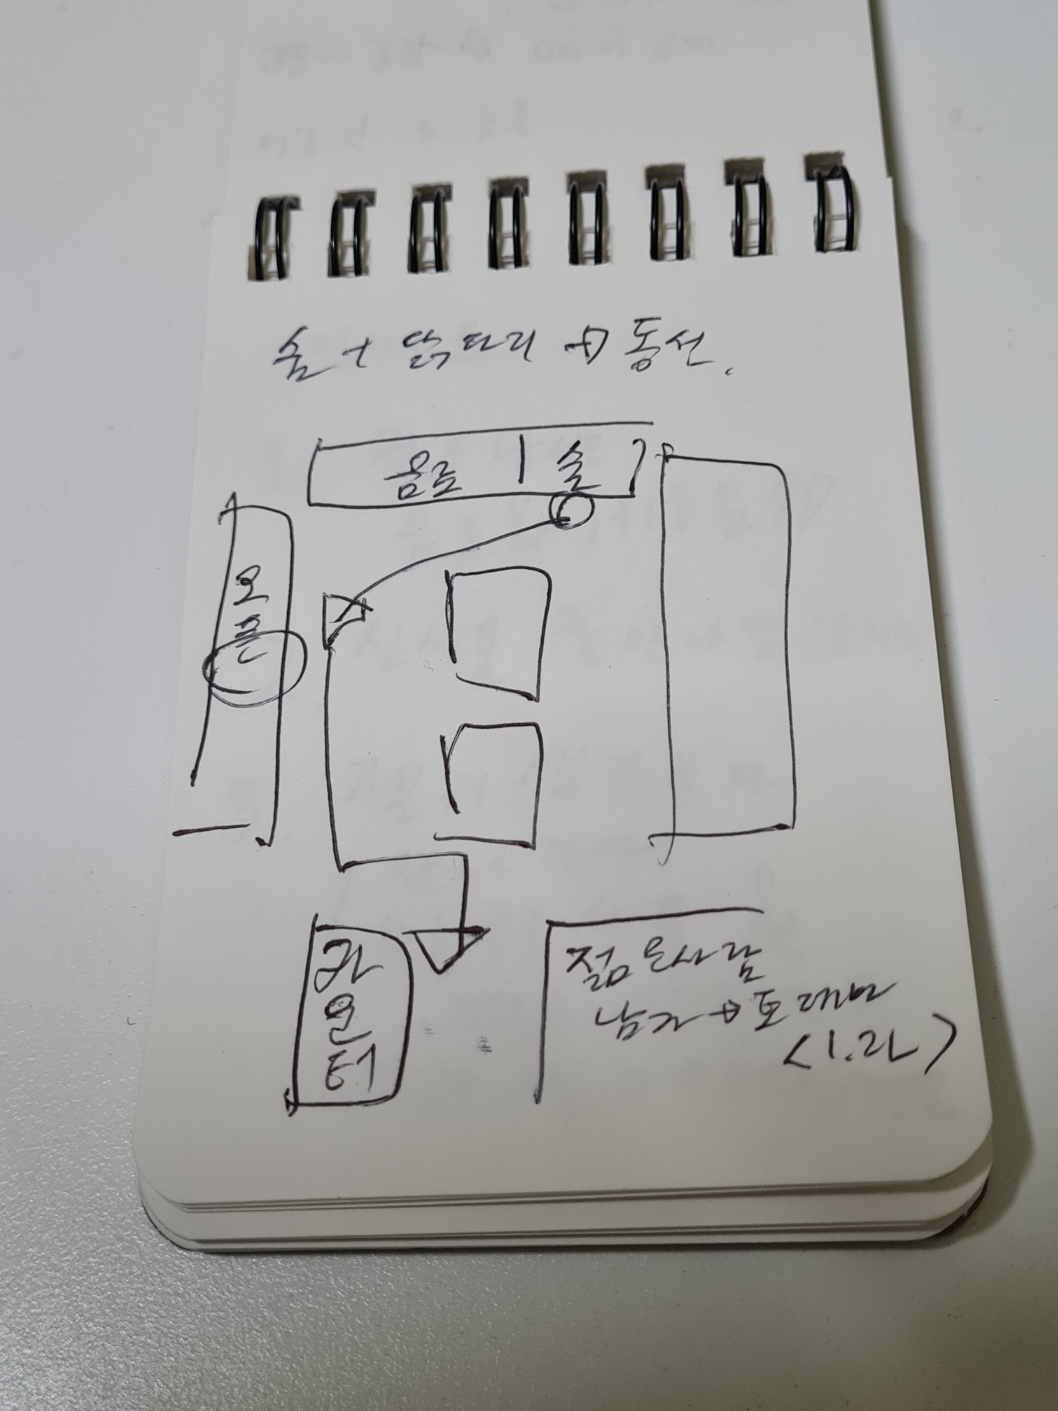 술 + 닭다리 → 동선.
음료 | 술
오픈
카
운
터
젊은사람
남자 → 토레타
(1.2L)